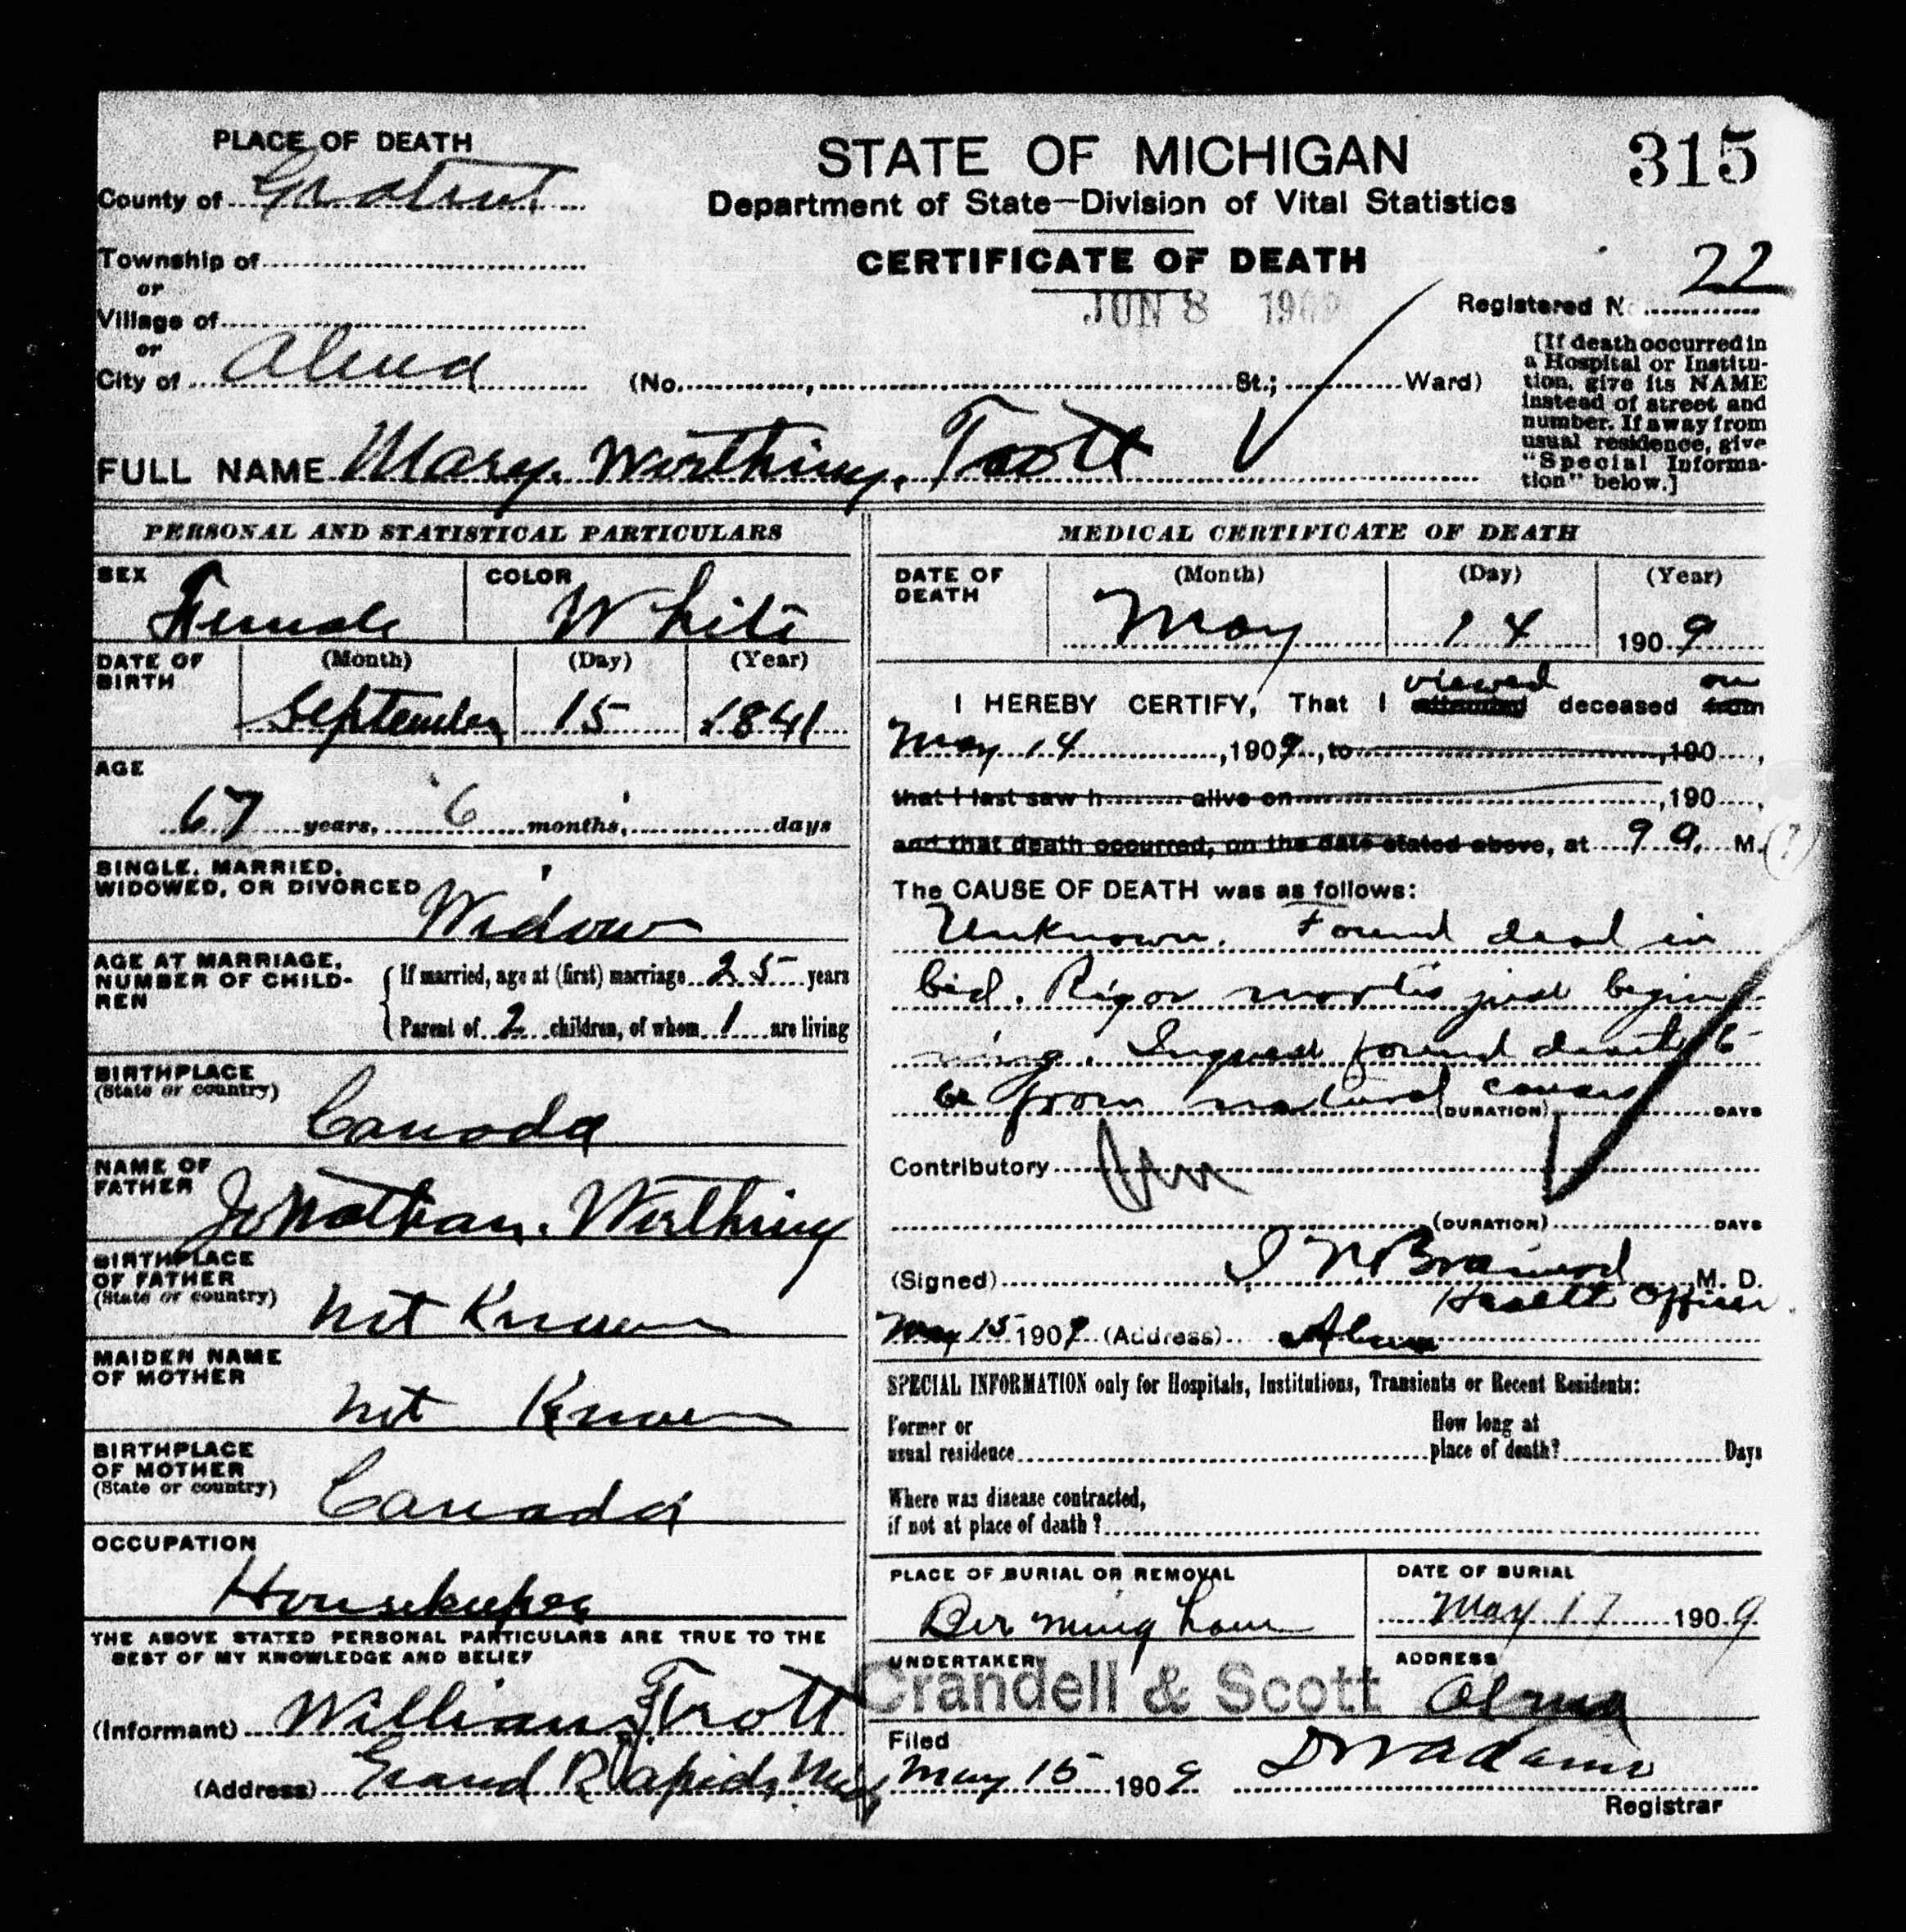 PLACE OF DEATH
County of Gratiot
Township of
or
Village of
or
City of Alma
STATE OF MICHIGAN
Department of State—Division of Vital Statistics
CERTIFICATE OF DEATH
JUN 8 1909
(No. , St.; Ward)
315
22
Registered No.
[If death occurred in
a Hospital or Institu-
tion, give its NAME
instead of street and
number. If away from
usual residence, give
"Special Informa-
tion" below.]
FULL NAME Mary. Worthing. Trott
PERSONAL AND STATISTICAL PARTICULARS
SEX Female
COLOR White
DATE OF BIRTH
(Month) (Day) (Year)
September 15 1841
AGE
67 years, 6 months, days
SINGLE, MARRIED,
WIDOWED, OR DIVORCED Widow
AGE AT MARRIAGE,
NUMBER OF CHILD-
REN
If married, age at (first) marriage 25 years
Parent of 2 children, of whom 1 are living
BIRTHPLACE
(State or country)
Canada
NAME OF
FATHER
Jonathan. Worthing
BIRTHPLACE
OF FATHER
(State or country)
Not Known
MAIDEN NAME
OF MOTHER
Not Known
BIRTHPLACE
OF MOTHER
(State or country)
Canada
OCCUPATION
Housekeeper
THE ABOVE STATED PERSONAL PARTICULARS ARE TRUE TO THE
BEST OF MY KNOWLEDGE AND BELIEF
(Informant) William Trott
(Address) Grand Rapids, Mich
MEDICAL CERTIFICATE OF DEATH
DATE OF
DEATH
(Month) (Day) (Year)
May 14 1909
viewed on
I HEREBY CERTIFY, That I attended deceased from
May 14, 1909, to , 190 ,
that I last saw h alive on , 190 ,
and that death occurred, on the date stated above, at 9 a. M. (?)
The CAUSE OF DEATH was as follows:
Unknown. Found dead in
bed. Rigor mortis just begin
ning. Inquest found death to
be from natural causes
(DURATION) DAYS
Contributory
(DURATION) DAYS
(Signed) I N Brainerd M. D.
Health Officer
May 15 1909 (Address) Alma
SPECIAL INFORMATION only for Hospitals, Institutions, Transients or Recent Residents:
Former or
usual residence
How long at
place of death? Days
Where was disease contracted,
if not at place of death?
PLACE OF BURIAL OR REMOVAL
Birmingham
DATE OF BURIAL
May 17 1909
UNDERTAKER
Crandell & Scott
ADDRESS
Alma
Filed
May 15 1909 Adams
Registrar